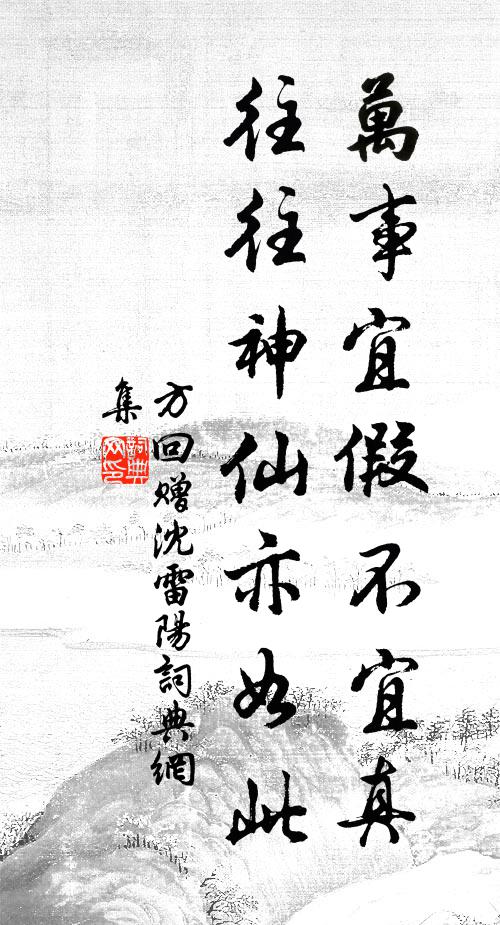 萬事宜假不宜真
往往神仙亦如此
方回贈沈雷陽詞典網
集
詞典網印